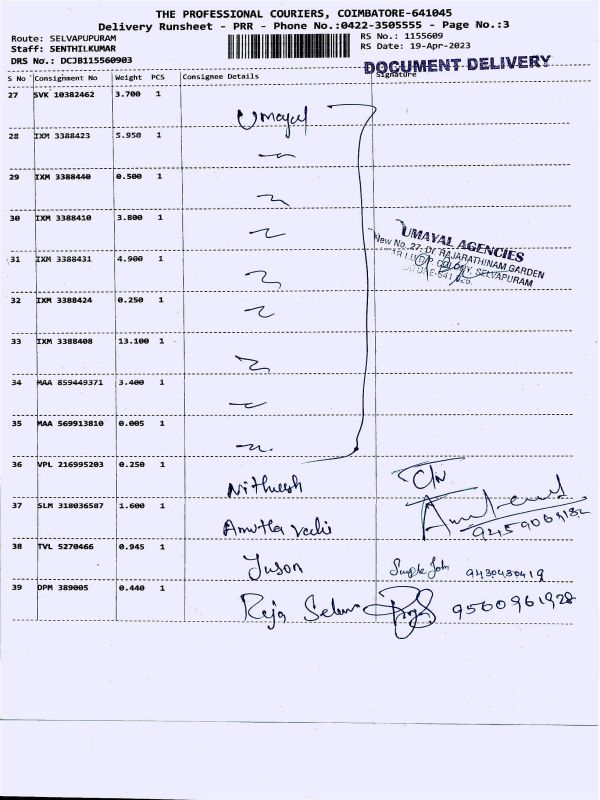 THE PROFESSIONAL COURIERS, COIMBATORE-641045
Delivery Runsheet - PRR - Phone No.:0422-3505555 - Page No.:3
Route: SELVAPUPURAM
RS No.: 1155609
Staff: SENTHILKUMAR
RS Date: 19-Apr-2023
DRS No.: DCJB115560903
DOCUMENT DELIVERY
S No Consignment No Weight PCS Consignee Details Signature
27 SVK 10382462 3.700 1
Umayal
28 IXM 3388423 5.950 1
29 IXM 3388440 0.500 1
30 IXM 3388410 3.800 1
UMAYAL AGENCIES
New No. 27, Dr. RAJARATHINAM GARDEN
COLONY, SELVAPURAM
31 IXM 3388431 4.900 1
32 IXM 3388424 0.250 1
33 IXM 3388408 13.100 1
34 MAA 859449371 3.400 1
35 MAA 569913810 0.005 1
36 VPL 216995203 0.250 1
Nithuesh
37 SLM 318036587 1.600 1
Amutha
38 TVL 5270466 0.945 1
Juson
9430480419
39 DPM 389005 0.440 1
Raja Selva
9560961928